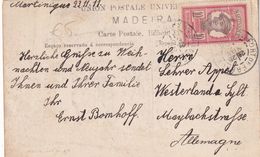 Martinique 22.11.11
UNION POSTALE UNIVERSELLE
MADEIRA
Carte Postale.
Espaço reservado á correspondencia
Herzliche Grüße zu Weih-
nachten und Neujahr sendet
Ihnen und Ihrer Familie
Ihr
Ernst Bornhoff.
Herrn
Lehrer Appel
Westerland a/ Sylt
Maybachstraße
Allemagne